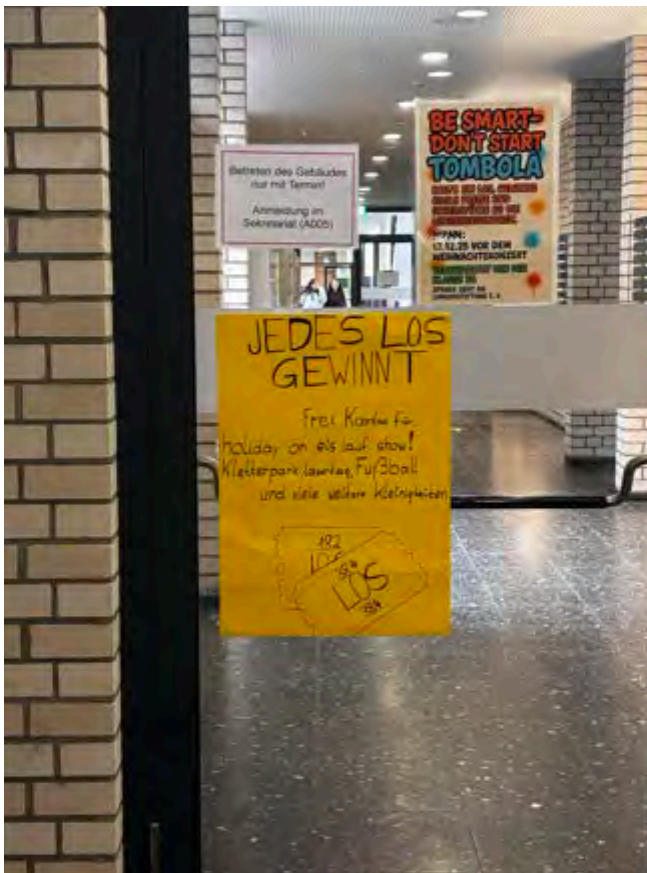 Betreten des Gebäudes
nur mit Termin!
Anmeldung im
Sekretariat (A005)
BE SMART-
DON'T START
TOMBOLA
WANN:
17.12.25 VOR DEM
WEIHNACHTSKONZERT
JEDES LOS
GEWINNT
Frei Karten für
holiday on eis lauf show!
Kletterpark, Fußball
und viele weitere Kleinigkeiten
192
LOS
LOS